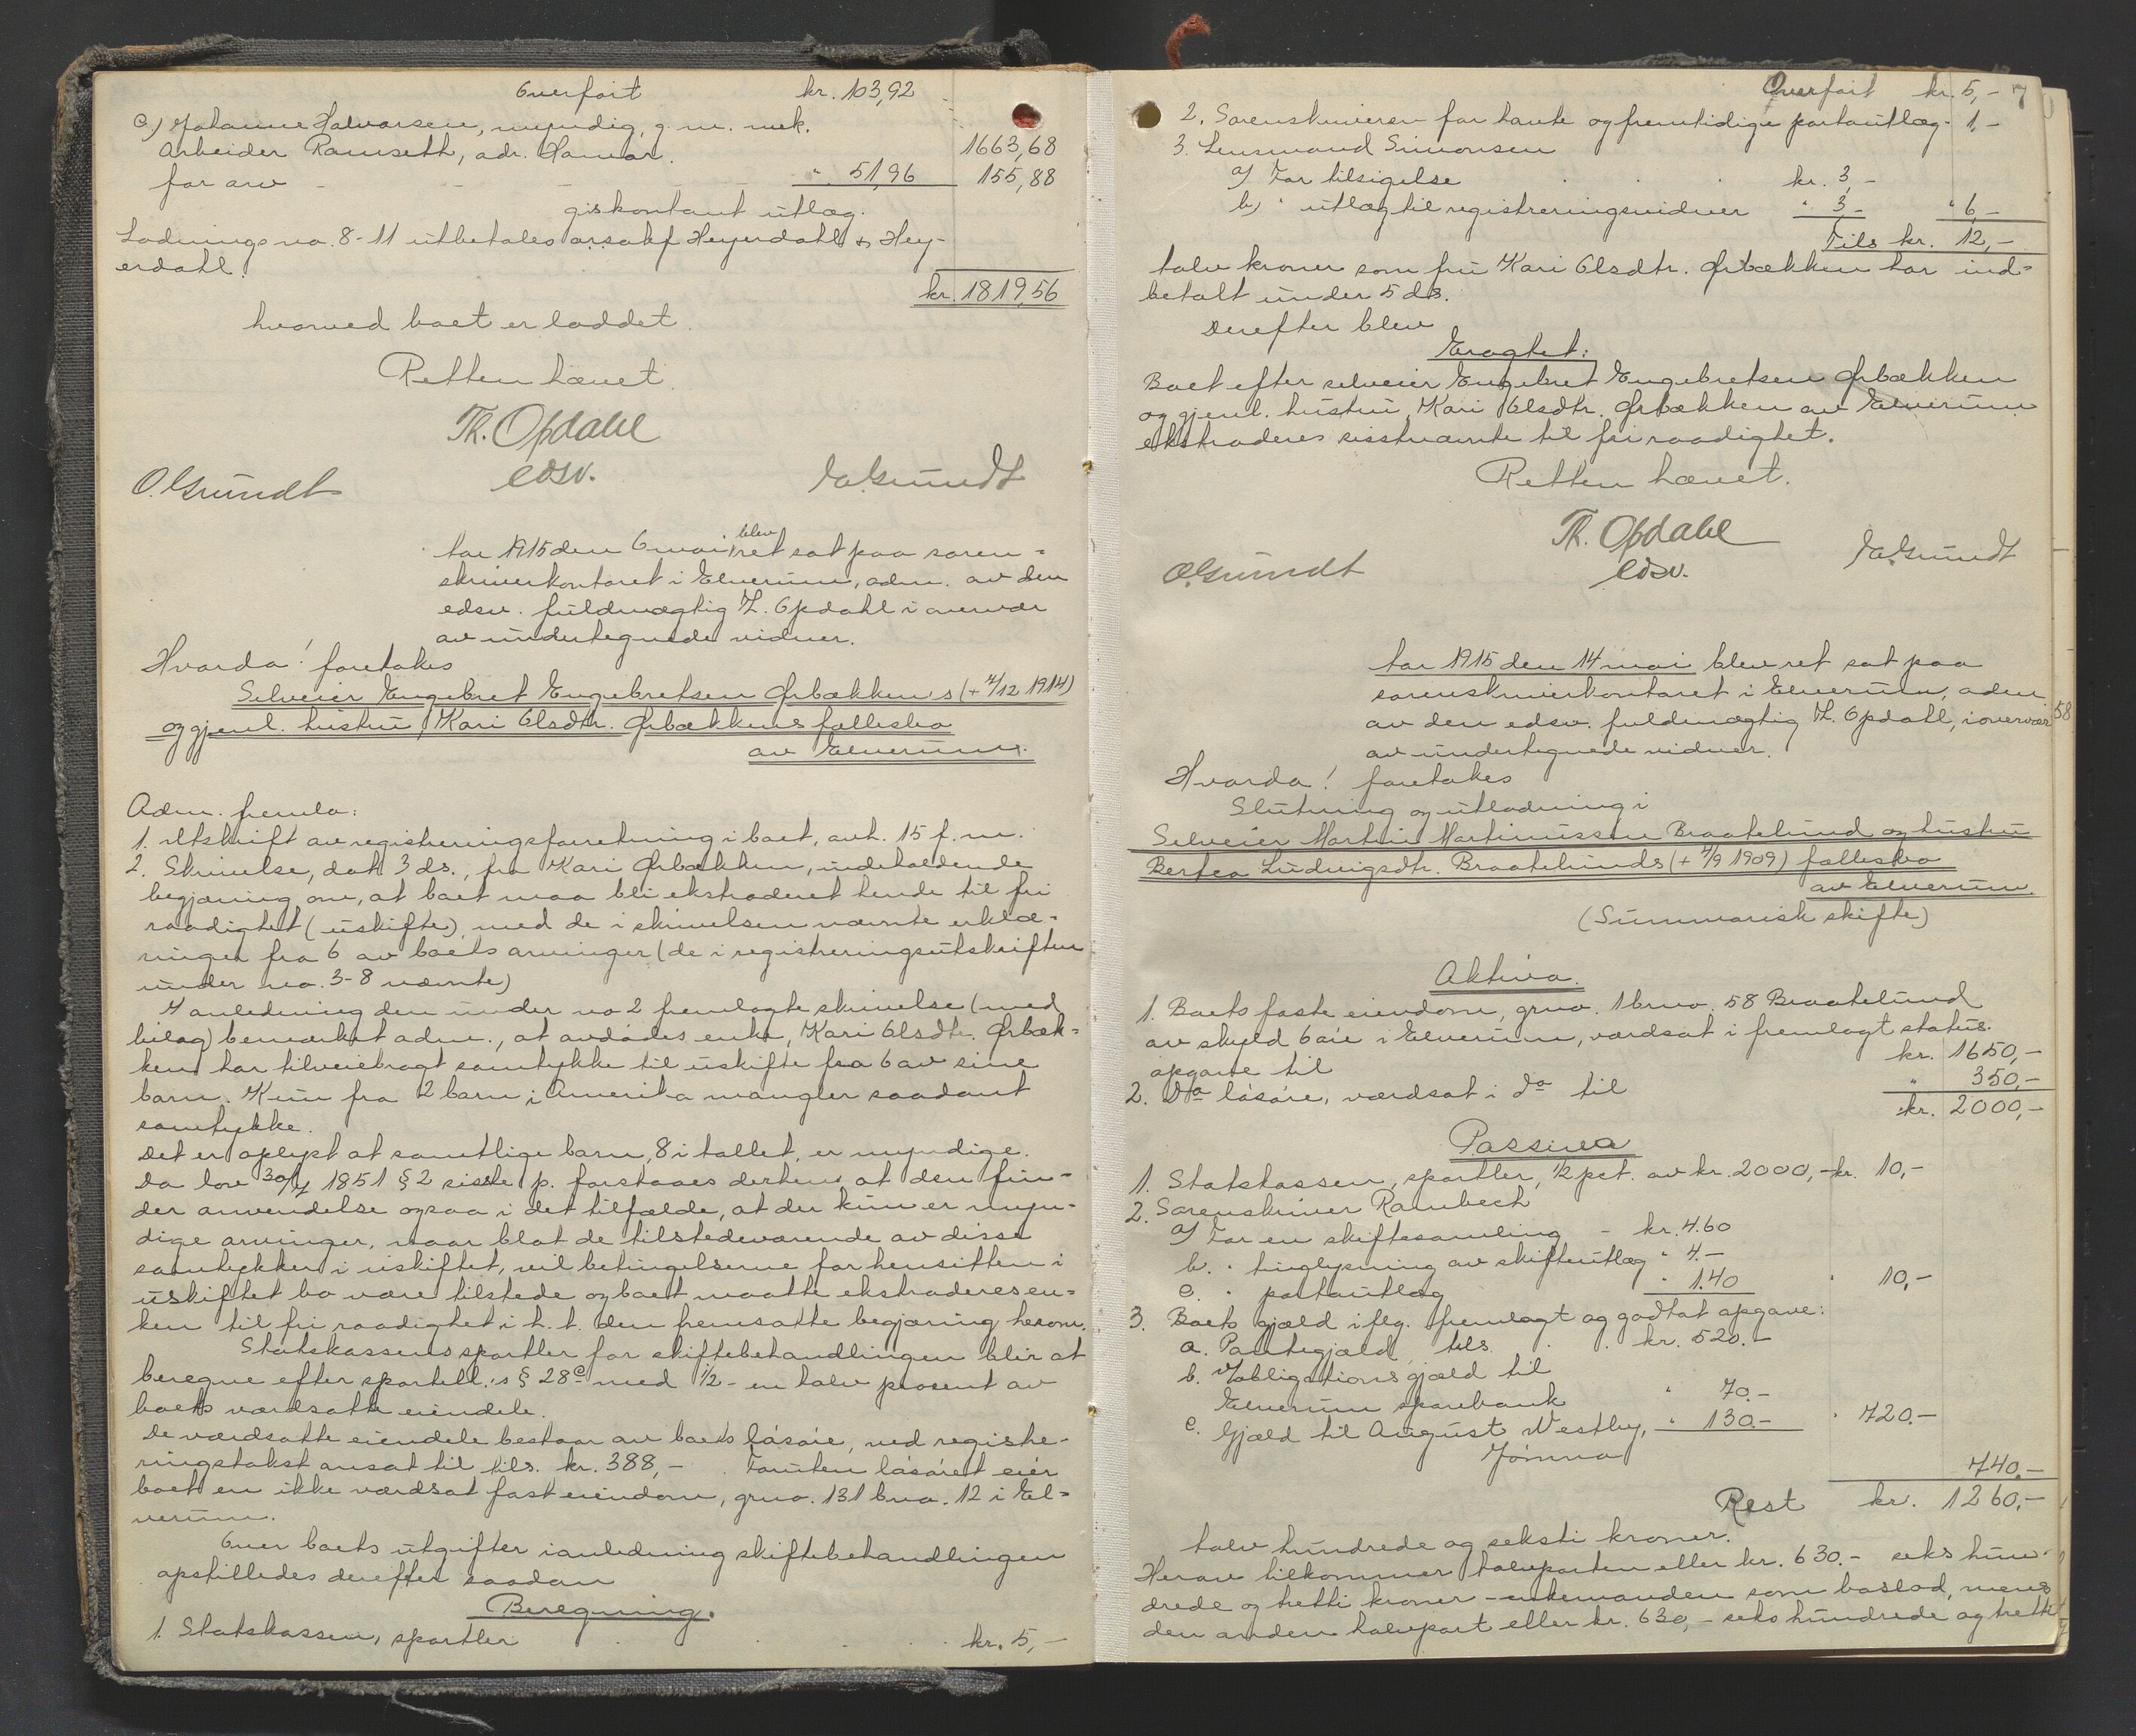 Overført kr. 103,92
c.) Johanne Halvorsen, myndig, g. m. mek.
Arbeider Ramseth, adr. Hamar. 1663,68
for arv " 51,96 155,88
giskontant utlæg.
Lodnings no. 8-11 utbetales o.r.sakf. Heyerdahl & Hey-
erdahl.
kr. 1819,56
hvorved boet er loddet.
Retten hævet.
Th. Opdahl
edsv.
O. Grundt
Aar 1915 den 6 mai blev ret sat paa soren-
skriverkontoret i Elverum, adm. av den
edsv. fuldmægtig Th. Opdahl i overvær
av undertegnede vidner.
Hvorda! foretokes
Selveier Engebret Engebretsen Ørbækkens (+ 4/12 1914)
og gjenl. hustru Kari Olsdtr. Ørbækkens fællesbo
av Elverum.
Adm. fremla:
1. Utskrift av registreringsforretning i boet, avh. 15 f. m.
2. Skrivelse, dat. 3 ds., fra Kari Ørbækken, indeholdende
begjæring om, at boet maa bli ekstraderet hende til fri
raadighet (uskifte), med de i skrivelsen nævnte erklæ-
ringer fra 6 av boets arvinger (de i registreringsutskriften
under no. 3-8 nævnte)
I anledning den under no 2 fremlagte skrivelse (med
bilag) bemærket adm., at avdødes enke, Kari Olsdtr. Ørbæk-
ken har tilveiebragt samtykke til uskifte fra 6 av sine
barn. Kun fra 2 barn i Amerika mangler saadant
samtykke.
Det er oplyst at samtlige barn, 8 i tallet, er myndige.
Da lov 30/7 1851 § 2 siste p. forstaaes derhen, at den fin-
der anvendelse ogsaa i det tilfælde, at der kun er myn-
dige arvinger, naar blot de tilstedeværende av disse
samtykker i uskiftet, vil betingelserne for hensitten i
uskiftet bo være tilstede og boet maatte ekstraderes en-
ken til fri raadighet i h. t. den fremsatte begjæring herom.
Statskassens sportler for skiftebehandlingen blir at
beregne efter sportell.'s § 28c med 1/2 - en halv procent av
boets værdsatte eiendele.
De værdsatte eiendele bestaar av boets løsøre, ved registre-
ringstakst ansat til tils. kr. 388,- . Foruten løsøret eier
boet en ikke værdsat fast eiendom, grno. 131 bno. 12 i El-
verum.
Over boets utgifter i anledning skiftebehandlingen
opstilledes derefter saadan
Beregning.
1. Statskassen, sportler kr. 5,-
Overført kr. 5,- 7
2. Sorenskriveren for hante og fremtidige portoutlæg - 1,-
3. Lensmand Simonsen
a) For tilsigelse kr. 3,-
b) " utlæg til registreringsvidner " 3,- " 6,-
Tils kr. 12,-
tolv kroner som fru Kari Olsdtr. Ørbækken har ind-
betalt under 5 ds.
Derefter blev
Eragtet:
Boet efter selveier Engebret Engebretsen Ørbækken
og gjenl. hustru, Kari Olsdtr. Ørbækken av Elverum
ekstraderes sisstnævnte til fri raadighet.
Retten hævet.
Th. Opdahl
edsv.
O. Grundt
Aar 1915 den 14 mai blev ret sat paa
sorenskriverkontoret i Elverum, adm
av den edsv. fuldmægtig Th. Opdahl, i overvær 58
av undertegnede vidner.
Hvorda! foretokes
Slutning og utlodning i
Selveier Martin Martinussen Braatelund og hustru
Bertea Ludvigsdtr. Braatelunds (+ 4/9 1909) fællesbo
av Elverum.
(Summarisk skifte)
Aktiva.
1. Boets faste eiendom, grno. 1 brno. 58 Braatelund
av skyld 6 øre i Elverum, værdsat i fremlagt status-
opgave til kr. 1650,-
2. Do løsøre, værdsat i do til " 350,-
kr. 2000,-
Passiva
1. Statskassen, sportler, 1/2 pct. av kr. 2000,- kr. 10,-
2. Sorenskriver Rambech
a) For en skiftesamling - kr. 4.60
b. " tinglysning av skifteutlæg " 4.-
c. " portoutlæg " 1.40 " 10,-
3. Boets gjæld iflg. fremlagt og godtat opgave:
a. Pantegjæld, tils. kr. 520.-
b. Vobligationsgjæld til
Elverum sparebank " 70.-
c. Gjæld til August Westby, " 130.- " 720.-
Jømna
740,-
Rest kr. 1260,-
tolv hundrede og seksti kroner.
Herav tilkommer halvparten eller kr. 630.- seks hun-
drede og tretti kroner - enkemanden som boslod, mens
den anden halvpart eller kr. 630,- seks hundrede og tretti